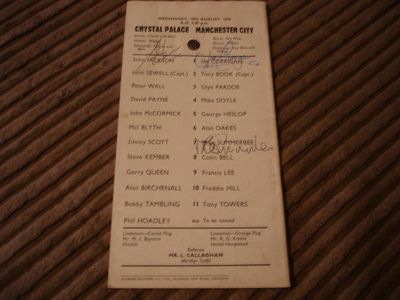 WEDNESDAY, 19th AUGUST, 1970
K.O. 7.30 p.m.
CRYSTAL PALACE MANCHESTER CITY
John JACKSON 1 Joe CORRIGAN
John SEWELL (Capt.) 2 Tony BOOK (Capt.)
Peter WALL 3 Glyn PARDOE
David PAYNE 4 Mike DOYLE
John McCORMICK 5 George HESLOP
Mel BLYTH 6 Alan OAKES
Jimmy SCOTT 7 SUMMERBEE
Steve KEMBER 8 Colin BELL
Gerry QUEEN 9 Francis LEE
Alan BIRCHENALL 10 Freddie HILL
Bobby TAMBLING 11 Tony TOWERS
Phil HOADLEY SUB To be named
Linesman—Yellow Flag Linesman—Orange Flag
Mr. M. J. Mr. R. G.
Hemel Hempstead
Referee
MR. L. CALLAGHAN
Merthyr Tydfil